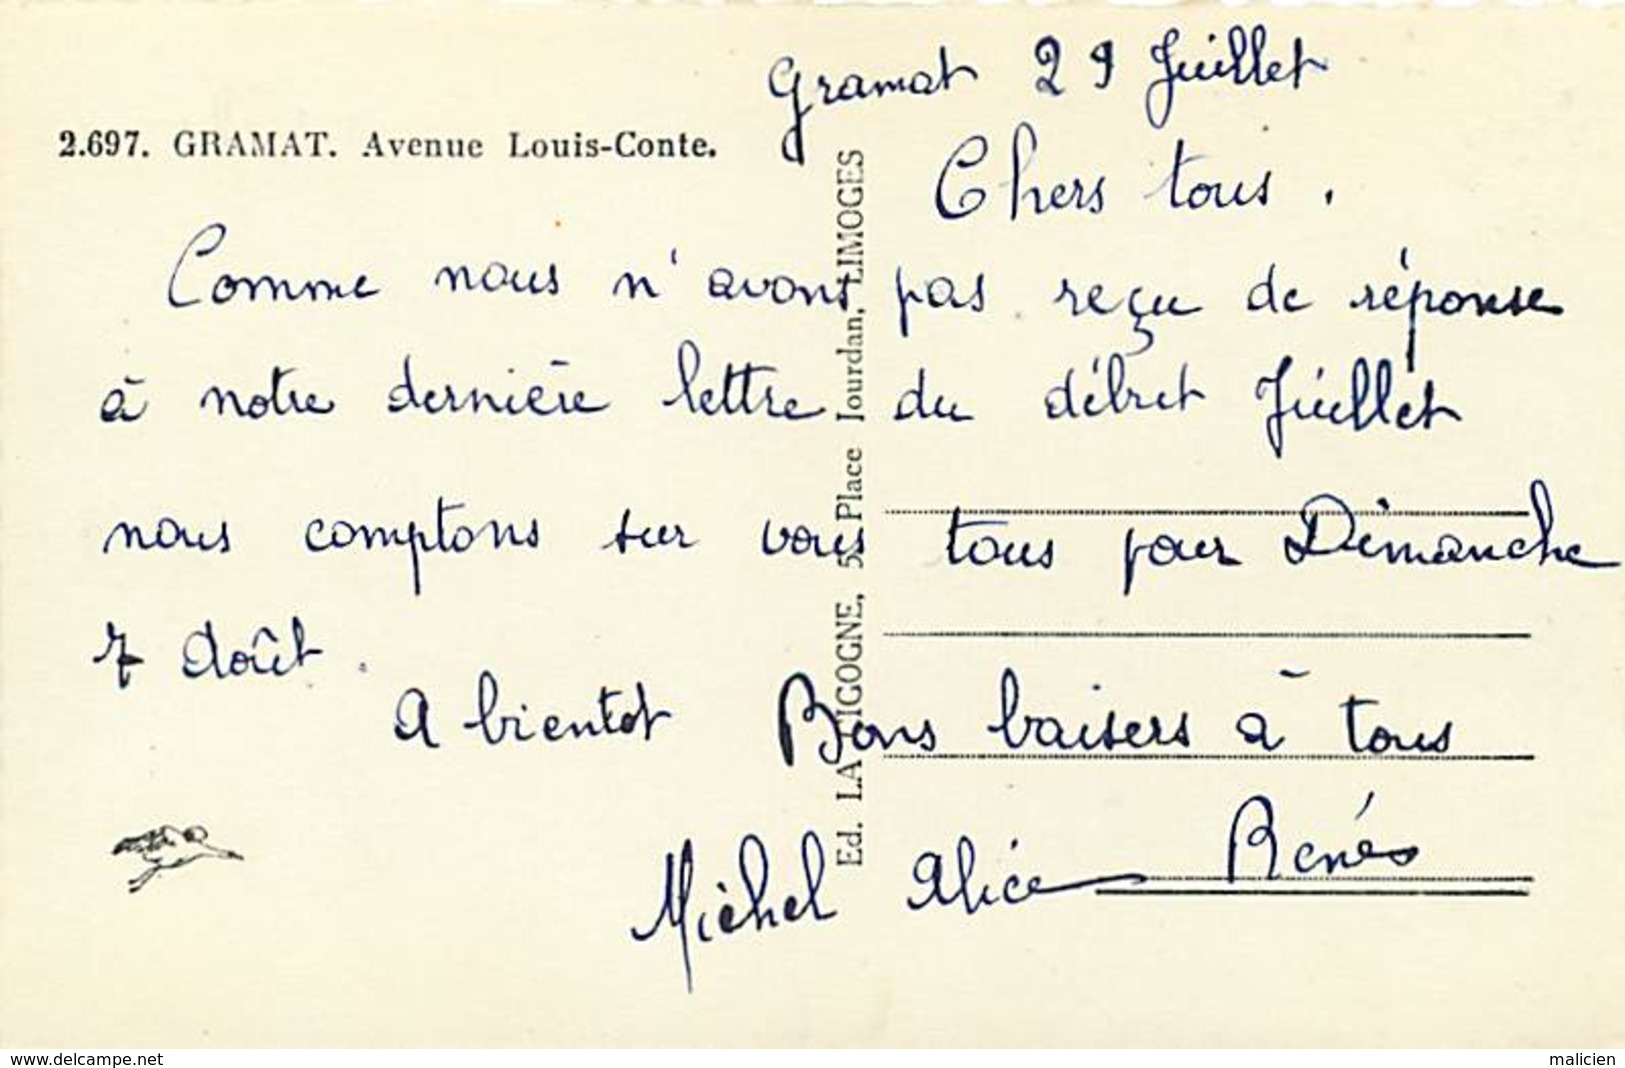 Gramat 29 Juillet
2.697. GRAMAT. Avenue Louis-Conte.
Chers tous.
Comme nous n'avons pas reçu de réponse
à notre dernière lettre du début Juillet
nous comptons sur vous tous pour Dimanche
7 Août.
A bientot Bons baisers à tous
Michel Alice René
Ed. LA CIGOGNE, 5, Place Jourdan, LIMOGES
www.delcampe.net
malicien